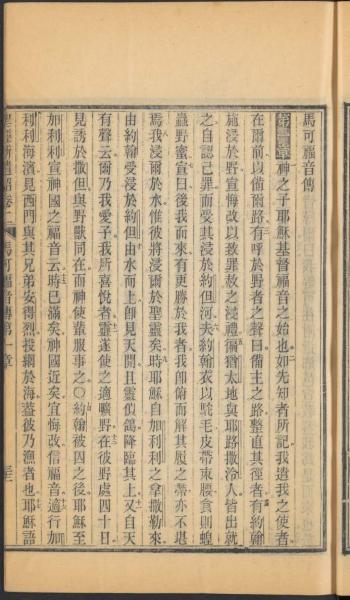 馬可福音傳
第一章神之子耶穌基督福音之始也如先知者所記我遣我之使者
在爾前以備爾路有呼於野者之聲曰備主之路整直其徑者有約翰
施浸於野宣悔改以致罪赦之浸禮猶太地與耶路撒冷人皆出就
之自認己罪而受其浸於約但河夫約翰衣以駝毛皮帶束腰食則蝗
蟲野蜜宣曰後我而來有更勝於我者我卽俯而解其履之帶亦不堪
焉我浸爾於水惟彼將浸爾於聖靈矣時耶穌自加利利之拿撒勒來
由約翰受浸於約但由水而上卽見天開且靈似鴿降臨其上又自天
有聲云爾乃我愛子我所喜悅者靈遂使之適曠野在彼野處四十日
見誘於撒但與野獸同在而神使輩服事之〇約翰被囚之後耶穌至
加利利宣神國之福音云時已滿矣神國近矣宜悔改信福音適行加
利利海濱見西門與其兄弟安得烈投網於海蓋彼乃漁者也耶穌語
馬可福音傳第一章